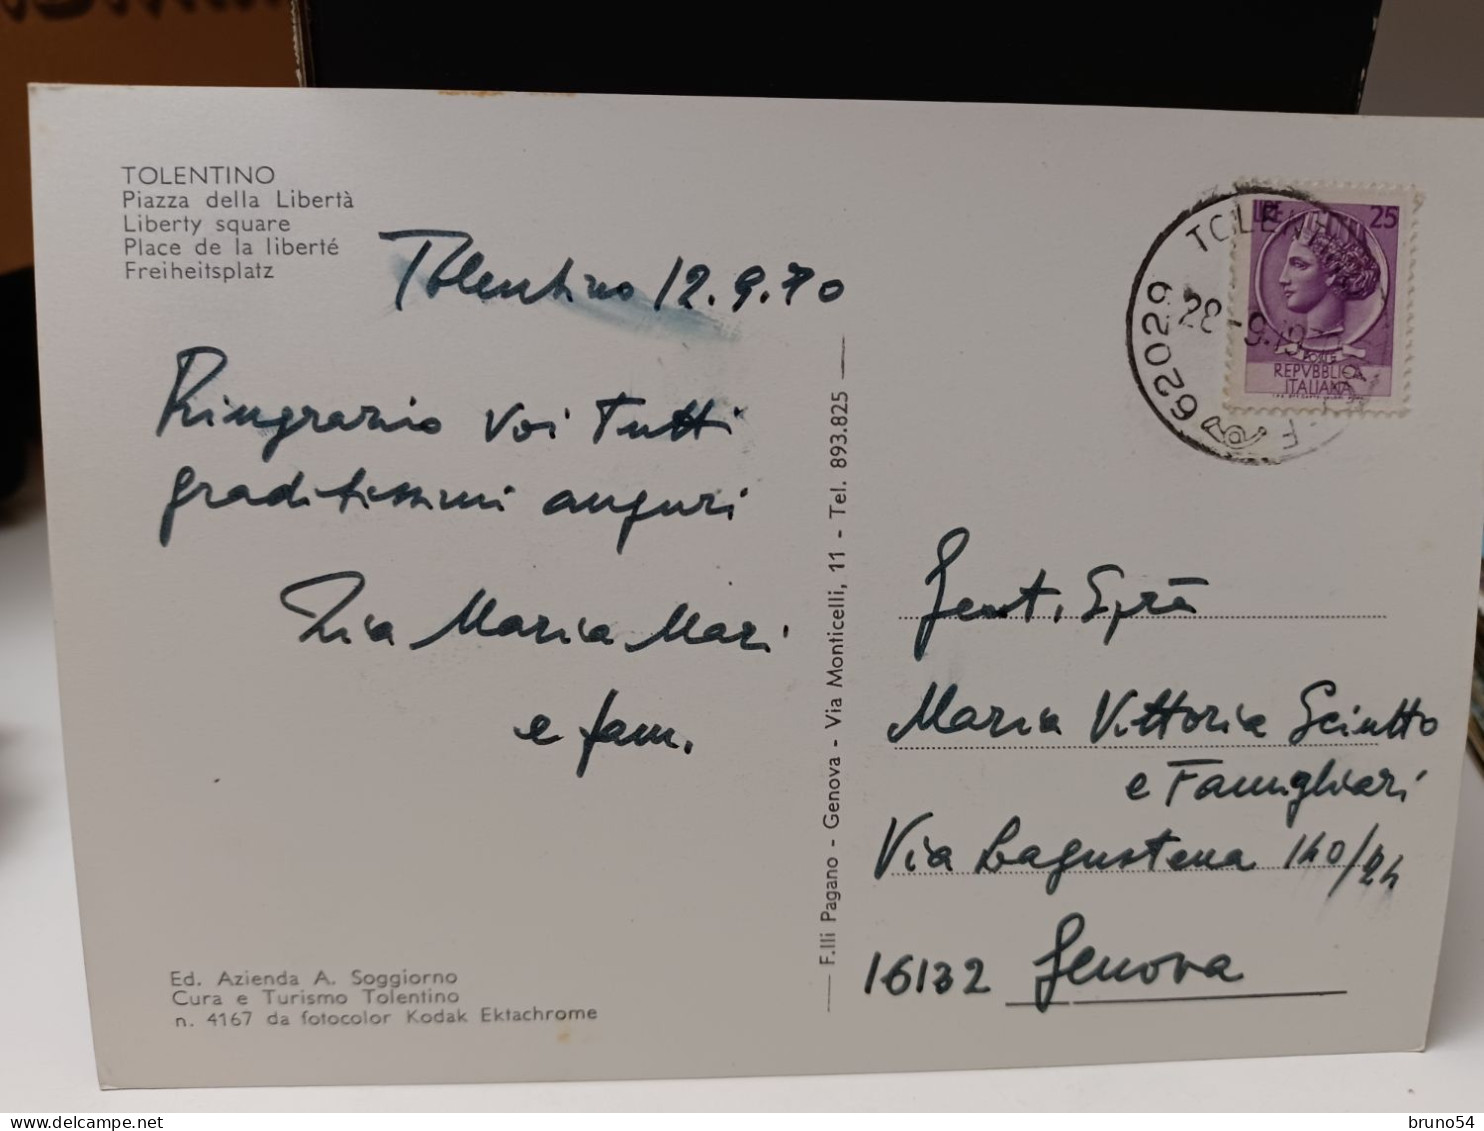 TOLENTINO
Piazza della Libertà
Liberty square
Place de la liberté
Freiheitsplatz
Tolentino 12.9.70
Ringrazio Voi Tutti
graditissimi auguri
Zia Maria Mari
e fam.
Ed. Azienda A. Soggiorno
Cura e Turismo Tolentino
n. 4167 da fotocolor Kodak Ektachrome
F.lli Pagano - Genova - Via Monticelli, 11 - Tel. 893.825
62029 TOLENTINO
28-9-19
LIRE 25
REPVBBLICA
ITALIANA
Gent. Sig.ra
Maria Vittoria Sciutto
e Famigliari
Via Bagustena 140/24
16132 Genova
delcampe.net
bruno54